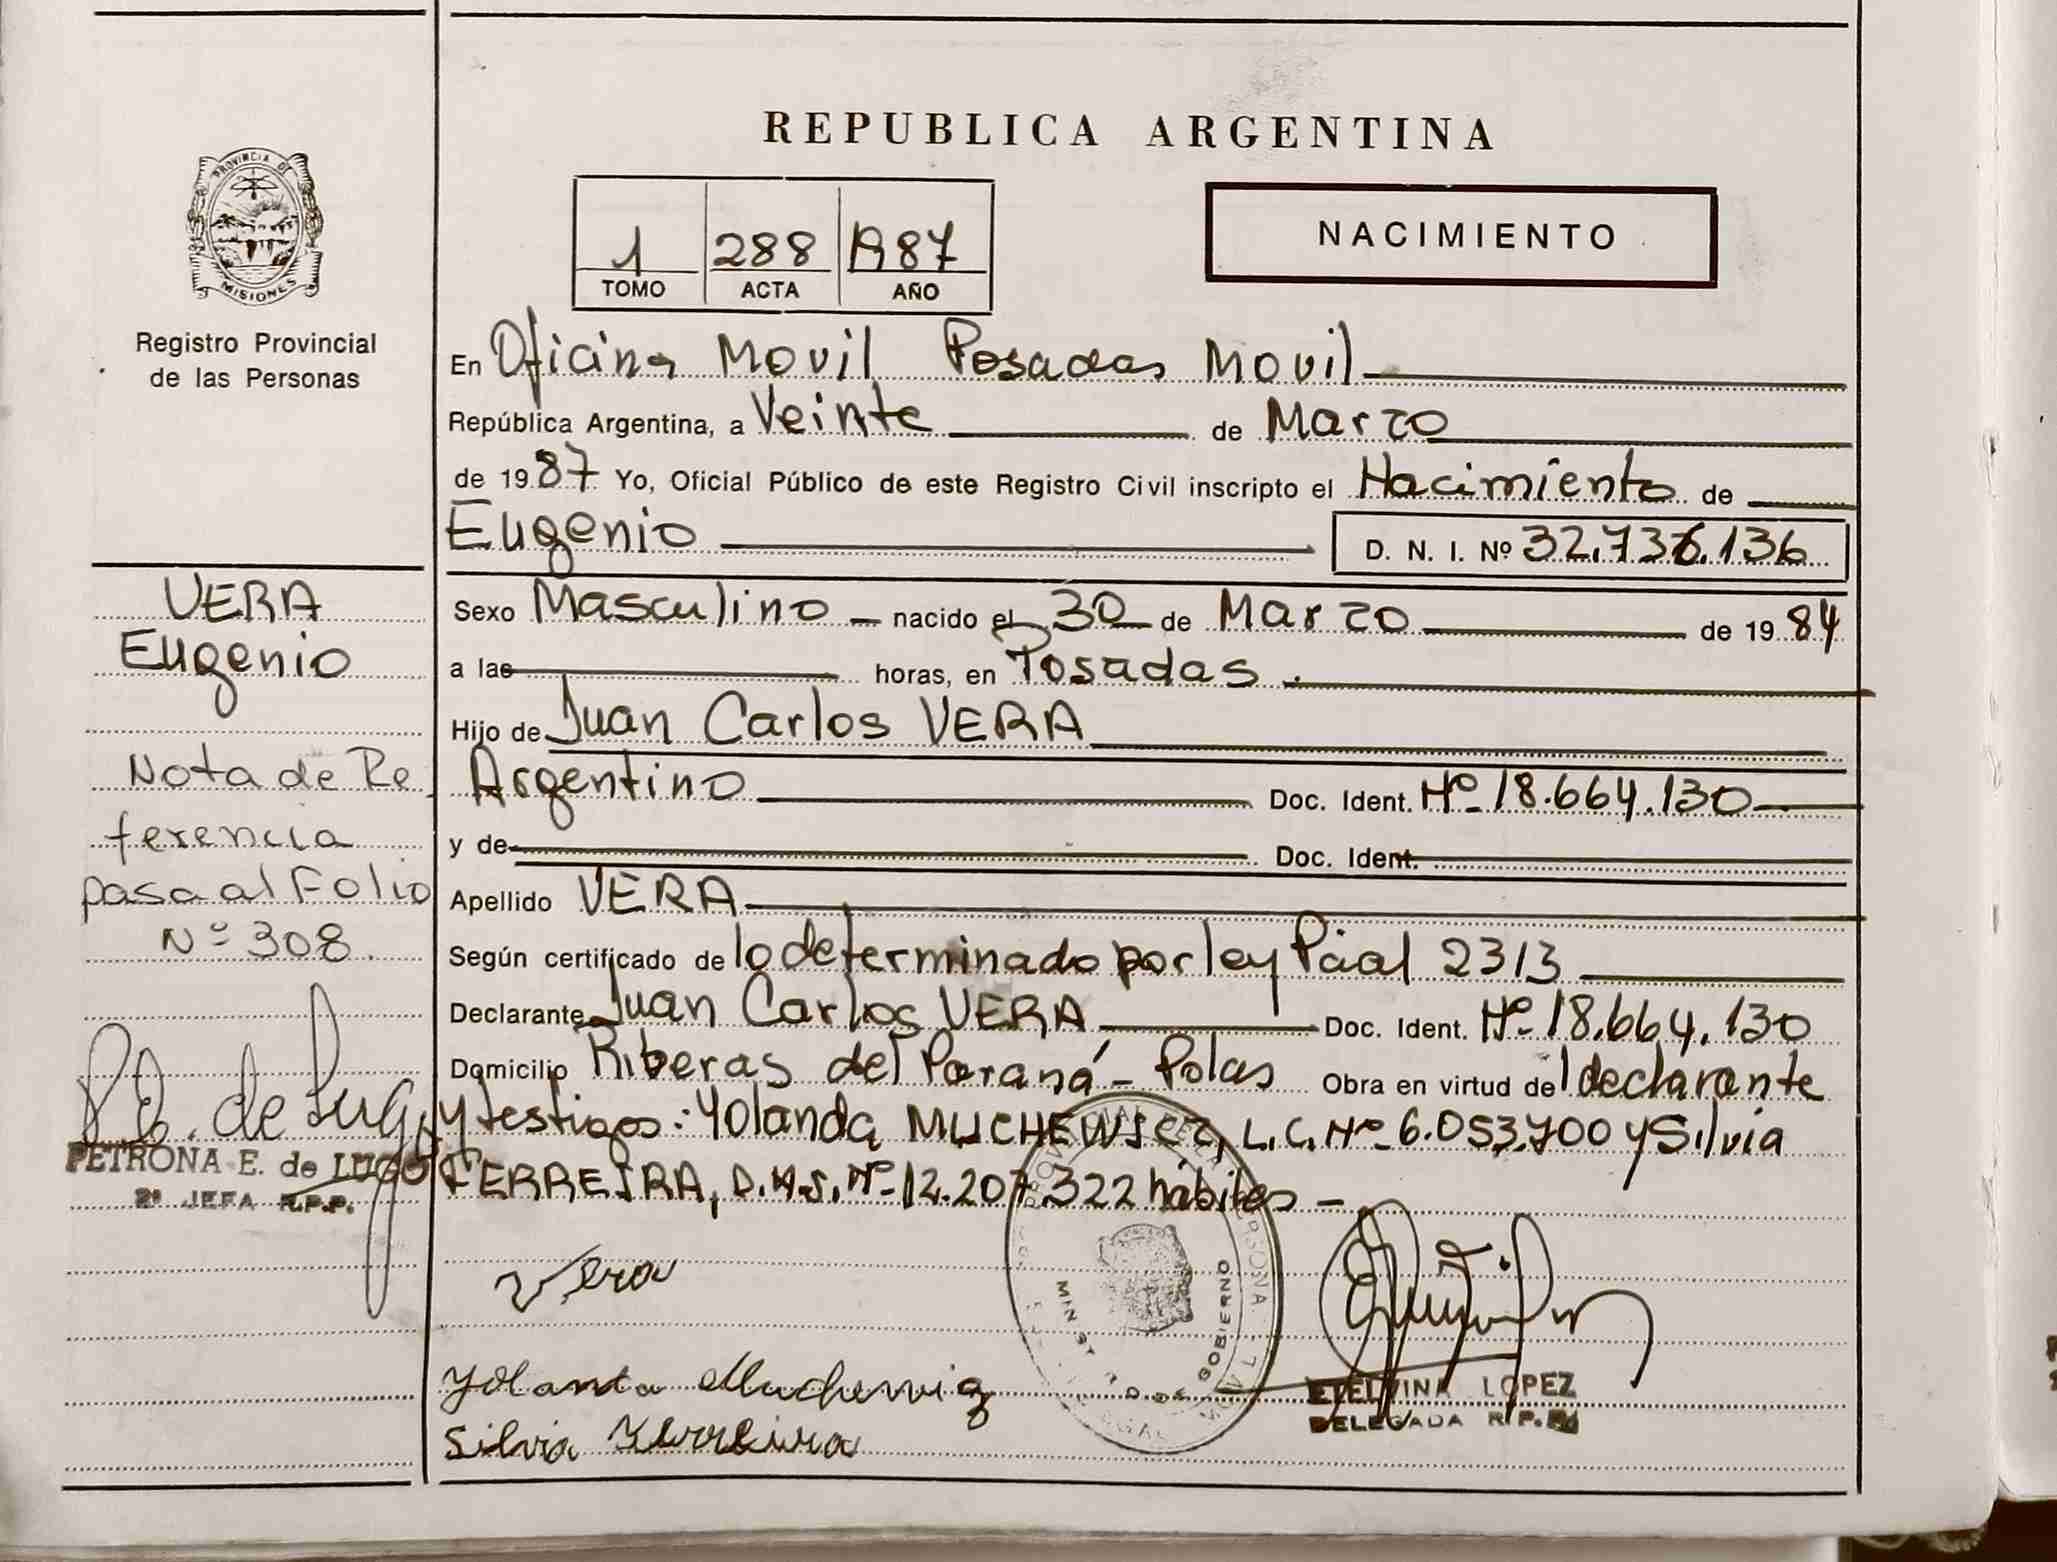 REPUBLICA ARGENTINA
PROVINCIA DE
MISIONES
Registro Provincial
de las Personas
1 288 1987
TOMO ACTA AÑO
NACIMIENTO
En Oficina Movil Posadas Movil
República Argentina, a Veinte de Marzo
de 1987 Yo, Oficial Público de este Registro Civil inscripto el Nacimiento de
Eugenio D. N. I. Nº 32.736.136
Sexo Masculino nacido el 30 de Marzo de 1984
a las horas, en Posadas.
Hijo de Juan Carlos VERA
Argentino Doc. Ident. Nº 18.664.130
y de Doc. Ident.
Apellido VERA
Según certificado de lo determinado por ley Pcial 2313
Declarante Juan Carlos VERA Doc. Ident. Nº 18.664.130
Domicilio Riberas del Paraná - Pdas Obra en virtud del declarante
y testigos: Yolanda MUCHEWICZ, L.C. Nº 6.053.700 y Silvia
FERREIRA, D.N.I. Nº 12.207.322 hábiles -
Vera
Yolanta Muchewicz
Silvia Ferreira
ETELVINA LOPEZ
DELEGADA R.P.P.
MINISTERIO DE GOBIERNO
VERA
Eugenio
Nota de Re
ferencia
pasa al Folio
Nº 308.
P. E. de Lugo
PETRONA E. de LUGO
2ª JEFA R.P.P.